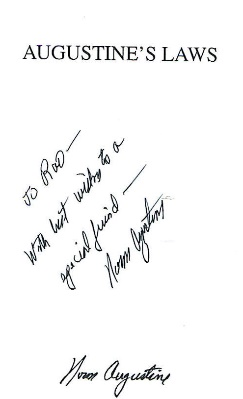 AUGUSTINE'S LAWS
To Rod —
With best wishes to a
special friend —
Norm Augustine
Norm Augustine